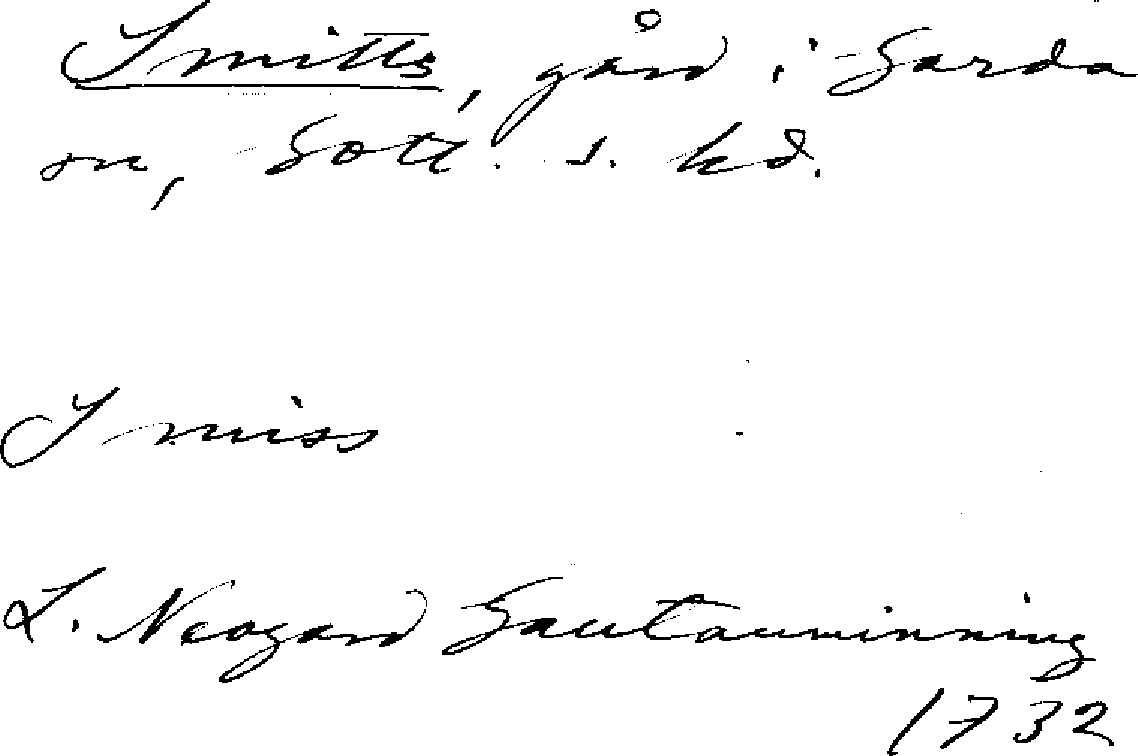 Smitts, gård i Garda
sn, Gotl. s. hd.
Smiss
L. Neogard Gautauminning
1732